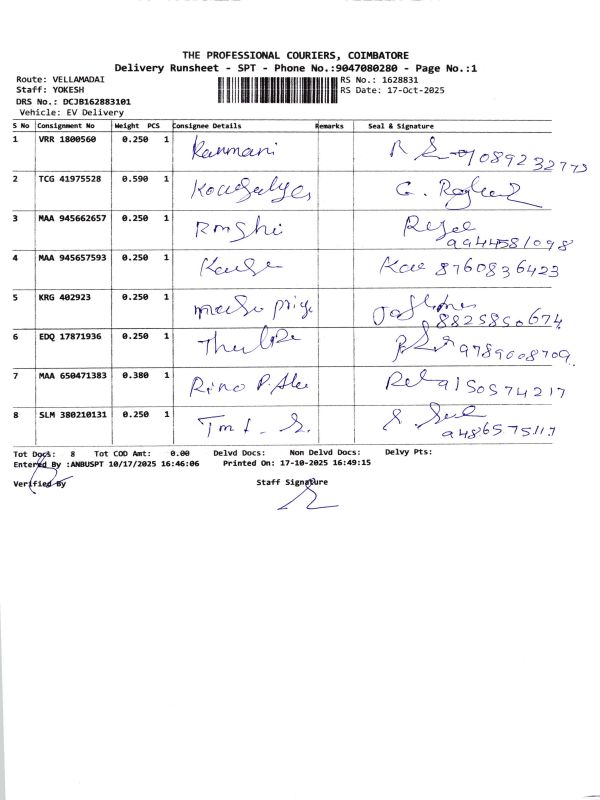 THE PROFESSIONAL COURIERS, COIMBATORE
Delivery Runsheet - SPT - Phone No.:9047080280 - Page No.:1
Route: VELLAMADAI
Staff: YOKESH
RS No.: 1628831
RS Date: 17-Oct-2025
DRS No.: DCJB162883101
Vehicle: EV Delivery
S No Consignment No Weight PCS Consignee Details Remarks Seal & Signature
1 VRR 1800560 0.250 1 Kanmani
2 TCG 41975528 0.590 1 G.
3 MAA 945662657 0.250 1 Roshi 9944581098
4 MAA 945657593 0.250 1 8760836423
5 KRG 402923 0.250 1 priya
8825850674
6 EDQ 17871936 0.250 1 9789008709
7 MAA 650471383 0.380 1 Rino 9150574217
8 SLM 380210131 0.250 1
Tot Docs: 8 Tot COD Amt: 0.00 Delvd Docs: Non Delvd Docs: Delvy Pts:
Entered By :ANBUSPT 10/17/2025 16:46:06 Printed On: 17-10-2025 16:49:15
Verified By Staff Signature